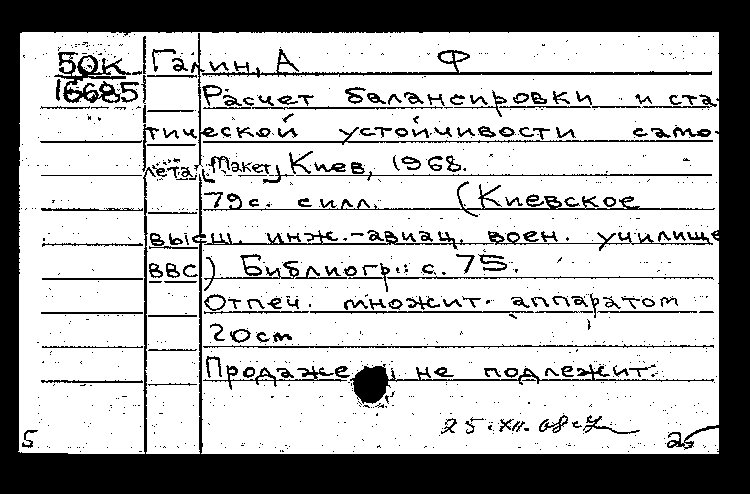 50К Галин, А Ф
16685 Расчет балансировки и ста-
тической устойчивости само-
лета [Макет] Киев, 1968.
79 с. с илл. (Киевское
высш. инж.-авиац. воен. училище
ВВС) Библиогр.: с. 75.
Отпеч. множит. аппаратом
20 см
Продаже не подлежит.
25.XII.68
5 25